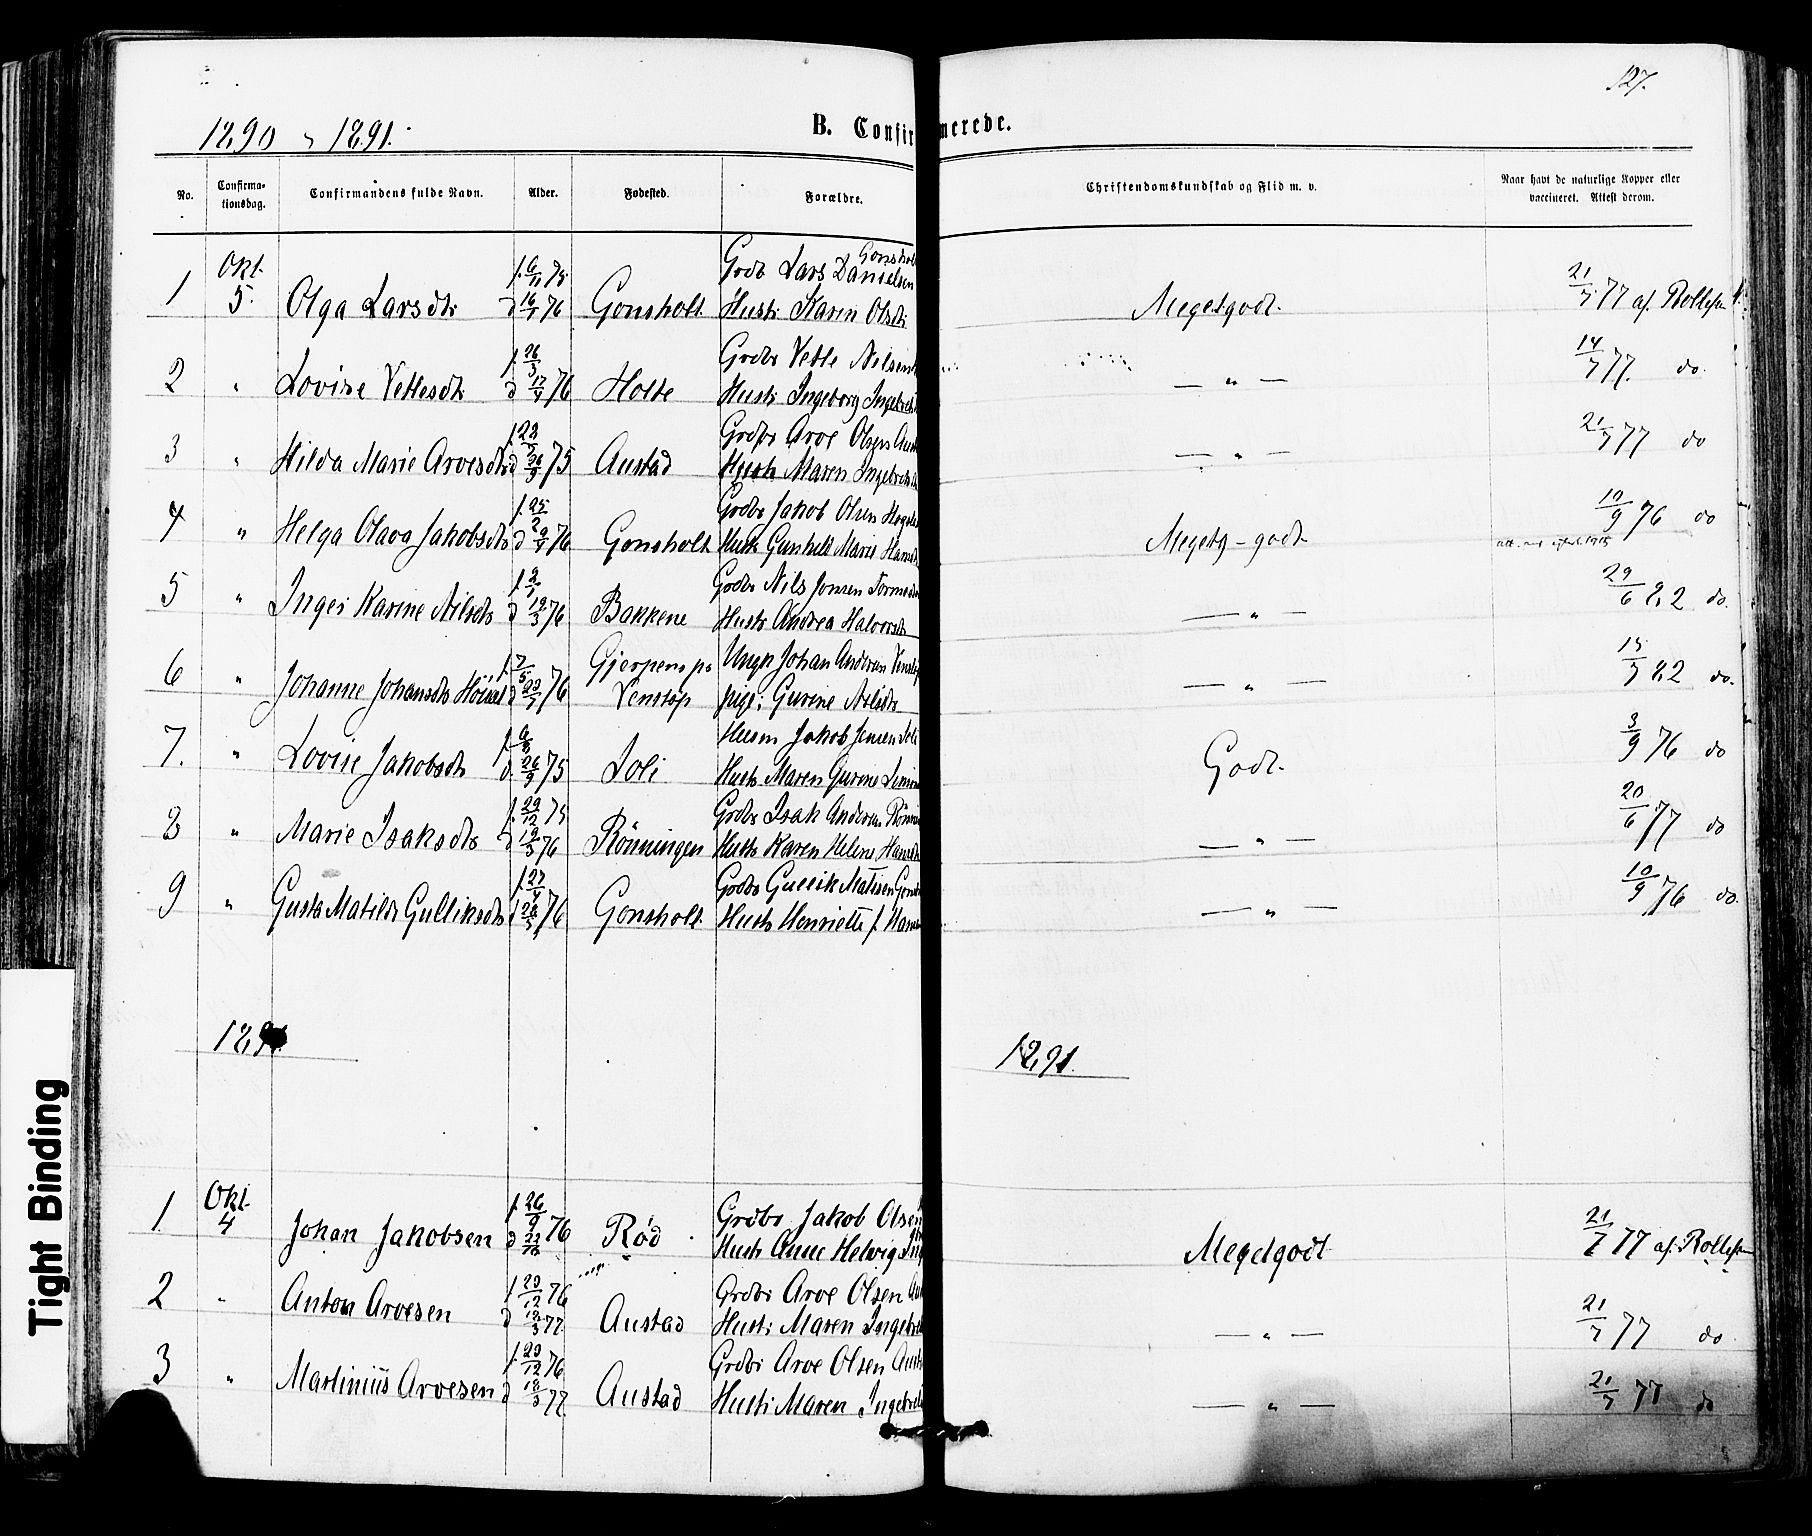 127.
1890 & 1891.
B. Confirmerede.
No.
Confirma-
tionsdag.
Confirmandens fulde Navn.
Alder.
Fødested.
Forældre.
Christendomskundskab og Flid m. v.
Naar havt de naturlige Kopper eller
vaccineret. Attest derom.
1 Okt. 5. Olga Larsdtr f. 6/11 75 d 16/1 76 Gonsholt Grdbr Lars Danielsen Gonsholt Hustr Karen Olsdtr Megetgodt. 21/7 77 af Rollefsen
2 " Lovise Vetlesdtr f. 26/3 d 17/4 76 Holte Grdbr Vetle Nilsen Hustr Ingeborg Ingebretsd — " — 14/7 77. do.
3 " Hilda Marie Arvesdtr f. 22/7 d 26/9 75 Austad Grdbr Arve Olsen Aust Hustr Maren Ingebretsd — " — 21/7 77 do
4 " Helga Olava Jakobsdtr f. 25/2 d 9/4 76 Gonsholt Grdbr Jakob Olsen Hustr Gunhild Marie Hansd Meget-godt 10/9 76 do
5 " Inger Karine Nilsdtr f. 2/1 d 19/3 76 Bakkene Grdbr Nils Jonsen Hustr Andrea Halvorsdtr — " — 29/6 82 do.
6 " Johanne Johansdtr f. 7/5 d 22/7 76 Gjerpens ps Venstøp Ungk Johan Andersen Venstøp pige: Gurine Nilsdtr — " — 15/7 82 do.
7. " Lovise Jakobsdtr f. 6/8 d. 26/9 75 Joli Husm Jakob Jensen Joli Hustr Maren Gurine Godt. 3/9 76 do
8 " Marie Isaksdtr f. 29/12 75 d 19/3 76 Rönningen Grdbr Isak Andersen Rönnin Hustr Karen Helene Hansdt — " — 20/6 77 do
9 " Gusta Matilde Gulliksdtr f. 27/4 d 28/5 76 Gonsholt Grdbr Gullik Matisen Gons Hustr Henriette f. Hansen — " — 10/9 76 do.
1891.
1891.
1 Okt. 4 Johan Jakobsen f. 26/9 d 22/10 76 Rød Grdbr Jakob Olsen Hustr Anne Helvig Ing Megetgodt 21/7 77 af: Rollefsen
2 " Anton Arvesen f. 20/12 76 d 18/3 77. Austad Grdbr Arve Olsen Aus Hustr Maren Ingebret — " — 21/7 77 do
3 " Martinius Arvesen f. 20/12 76 d 18/3 77. Austad Grdbr Arve Olsen Aust Hustr Maren Ingebrets — " — 21/7 77 do
Tight Binding